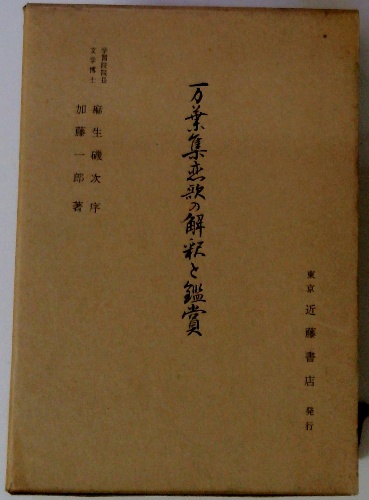 東京 近藤書店 発行
万葉集恋歌の解釈と鑑賞
学習院院長
文学博士
麻生磯次 序
加藤一郎 著